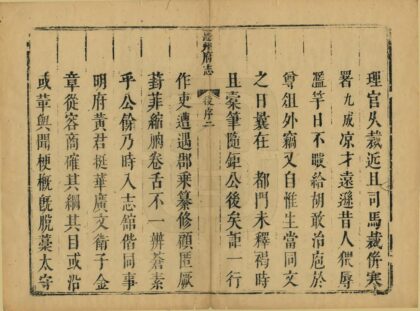 理官久裁近且司馬裁併寒
署九咸凉才遠遜昔人猥辱
濫竽日不暇給胡敢治庖於
尊俎外竊又自惟生當同文
之日曩在 都門未釋褐時
且槖筆隨鉅公後矣詎一行
州府志 後序二
作吏遭遇郡乘纂修顧匿厥
葑菲縮朒卷舌不一辨蒼素
乎公餘乃時入志舘偕同事
明府黃君挺華廣文衛子金
章從容商確其綱其目或沿
或革與聞梗槪旣脫藁太守